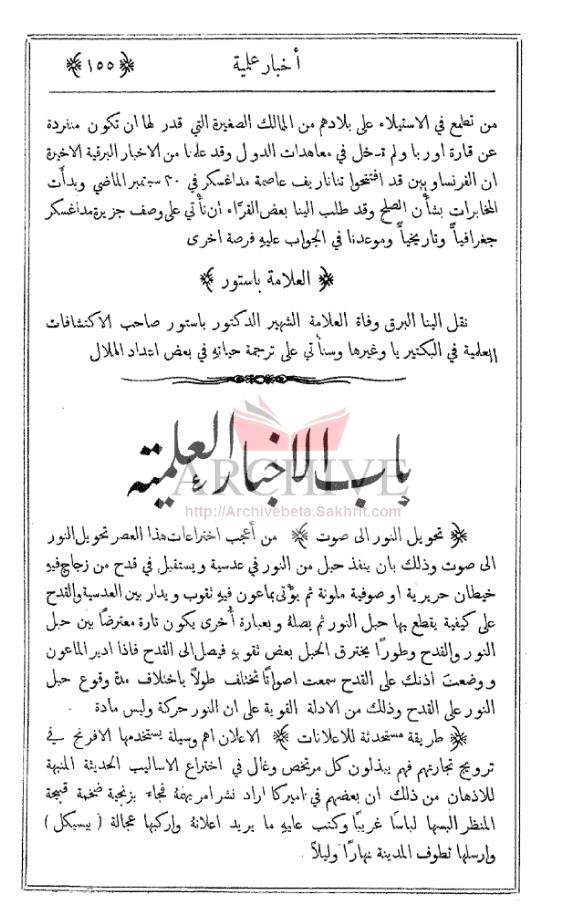 أخبار علمية
﴿ ١٥٥ ﴾
من تطمع في الاستيلاء على بلادهم من المالك الصغيرة التي قدر لها ان تكون منفردة
عن قارة اوربا ولم تدخل في معاهدات الدول وقد علمنا من الاخبار البرقية الاخيرة
ان الفرنساويين قد افتتحوا تناناريف عاصمة مداغسكر في ٣٠ سبتمبر الماضي وبدأت
المخابرات بشأن الصلح وقد طلب الينا بعض القراء ان نأتي على وصف جزيرة مداغسكر
جغرافياً وتاريخياً وموعدنا في الجواب عليهِ فرصة اخرى
﴿ العلامة باستور ﴾
نقل الينا البرق وفاة العلامة الشهير الدكتور باستور صاحب الاكتشافات
العلمية في البكتيريا وغيرها وسنأتي على ترجمة حياتهِ في بعض اعتداد الهلال
باب الاخبار العلمية
ARCHIVE
http://Archivebeta.Sakhrit.com
﴿ تحويل النور الى صوت ﴾ من أعجب اختراعات هذا العصر تحويل النور
الى صوت وذلك بان ينفذ حبل من النور في عدسية ويستقبل في قدح من زجاج فيهِ
خيطان حريرية او صوفية ملونة ثم يؤتى بماعون فيهِ ثقوب ويدار بين العدسية والقدح
على كيفية يقطع بها حبل النور ثم يصله وبعبارة أخرى يكون تارة معترضاً بين حبل
النور والقدح وطوراً يخترق الحبل بعض ثقوبهِ فيصل الى القدح فاذا ادير الماعون
ووضعت اذنك على القدح سمعت اصواتاً تختلف طولاً باختلاف مدة وقوع حبل
النور على القدح وذلك من الادلة القوية على ان النور حركة وليس مادة
﴿ طريقة مستحدثة للاعلانات ﴾ الاعلان اهم وسيلة يستخدمها الافرنج في
ترويج تجارتهم فهم يبذلون كل مرتخص وغال في اختراع الاساليب الحديثة المنبهة
للاذهان من ذلك ان بعضهم في اميركا اراد نشر امر يهمهُ فجاء بزنجية ضخمة قبيحة
المنظر البسها لباساً غريباً وكتب عليهِ ما يريد اعلانهُ واركبها عجالة ( بيسيكل )
وارسلها تطوف المدينة نهاراً وليلاً